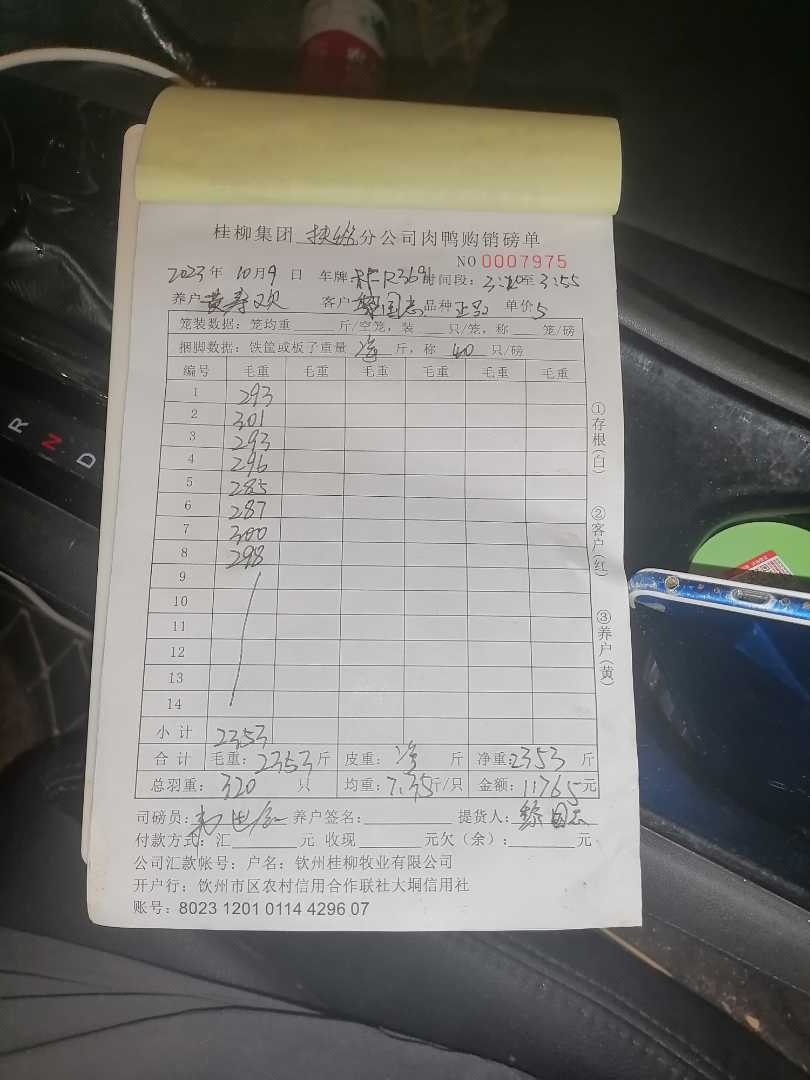 桂柳集团 扶绥 分公司肉鸭购销磅单
NO 0007975
2023年 10月9日 车牌: R3691 时间段: 3:20至3:55
养户 黄寿欢 客户 黎国志 品种 正品 单价 5
笼装数据: 笼均重 斤/空笼, 装 只/笼, 称 笼/磅
捆脚数据: 铁筐或板子重量 净 斤, 称 40 只/磅
编号 毛重 毛重 毛重 毛重 毛重 毛重
1 293
2 301
3 293
4 296
5 285
6 287
7 300
8 298
9
10
11
12
13
14
小计 2353
合计 毛重: 2353斤 皮重: 净 斤 净重: 2353 斤
总羽重: 320 只 均重: 7.35斤/只 金额: 11765元
司磅员: 养户签名: 提货人: 黎国志
付款方式: 汇 元 收现 元欠(余): 元
公司汇款帐号: 户名: 钦州桂柳牧业有限公司
开户行: 钦州市区农村信用合作联社大垌信用社
账号: 8023 1201 0114 4296 07
①存根(白)
②客户(红)
③养户(黄)
R
N
D